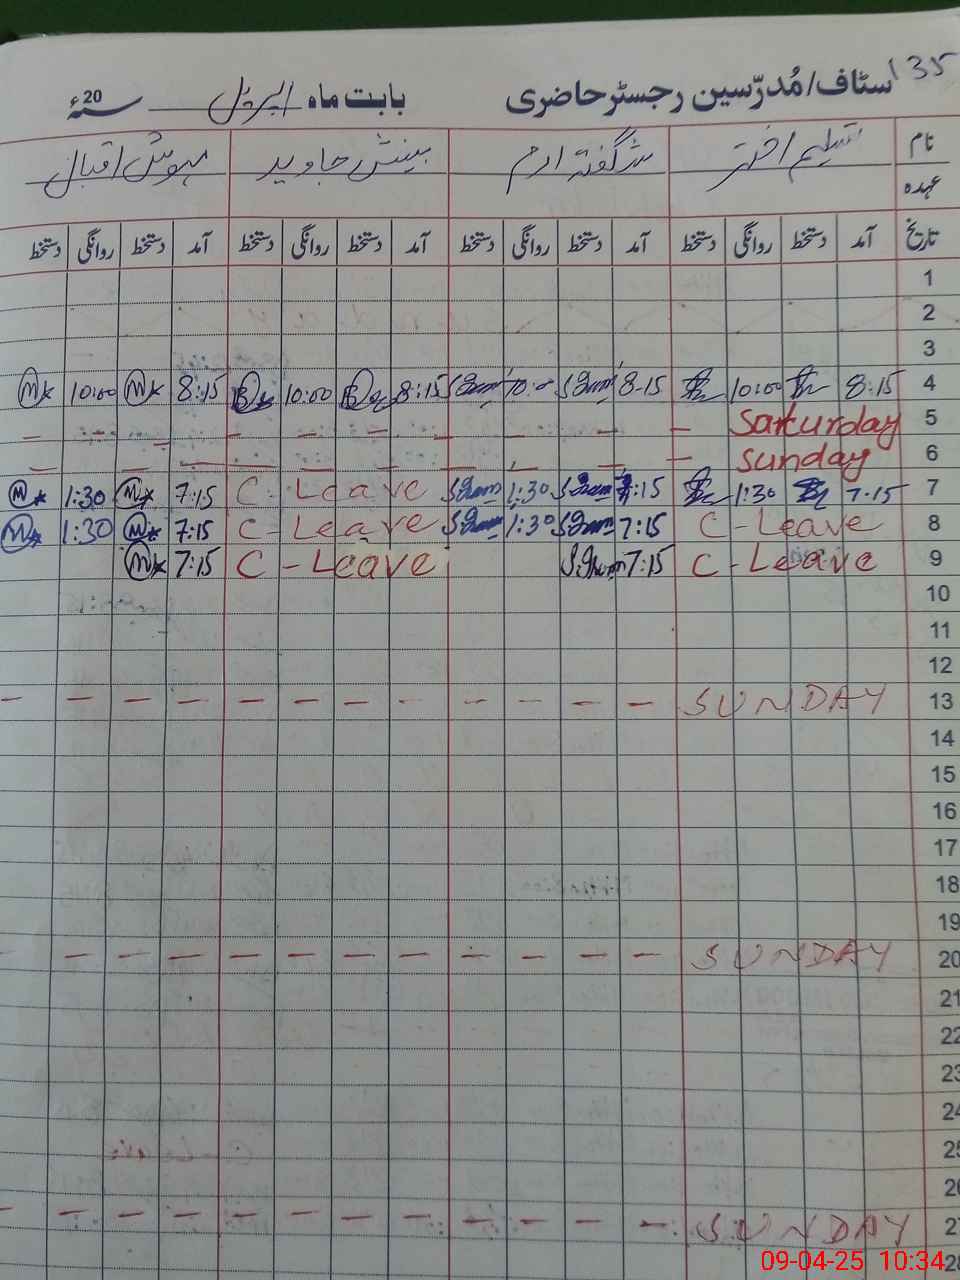 135
سٹاف/مُدرّسین رجسٹر حاضری بابت ماہ اپریل سنہ 20ء
نام تسلیم اختر شگفتہ ارم بینش جاوید مہوش اقبال
عہدہ
تاریخ آمد دستخط روانگی دستخط آمد دستخط روانگی دستخط آمد دستخط روانگی دستخط آمد دستخط روانگی دستخط
1
2
3
4 8:15 10:00 8-15 8:15 10:00 8:15 10:00
5 Saturday
6 Sunday
7 7:15 1:30 7:15 1:30 C-Leave 7:15 1:30
8 C-Leave 7:15 1:30 C-Leave 7:15 1:30
9 C-Leave 7:15 C-Leave 7:15
10
11
12
13 SUNDAY
14
15
16
17
18
19
20 SUNDAY
21
22
23
24
25
26
27 SUNDAY
28
09-04-25 10:34